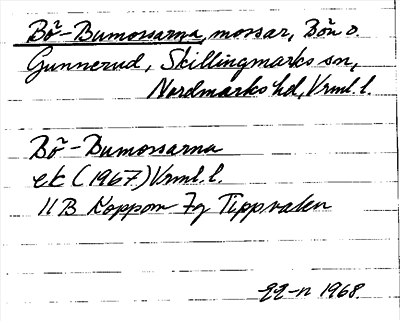 Bö̃-Bumossarna, mossar, Bön o.
Gunnerud, Skillingmarks sn,
Nordmarks hd, Vrml. l.
Bö̃-Bumossarna
ek (1967) Vrml. l.
11B Koppom 7g Tippvalen
1968.